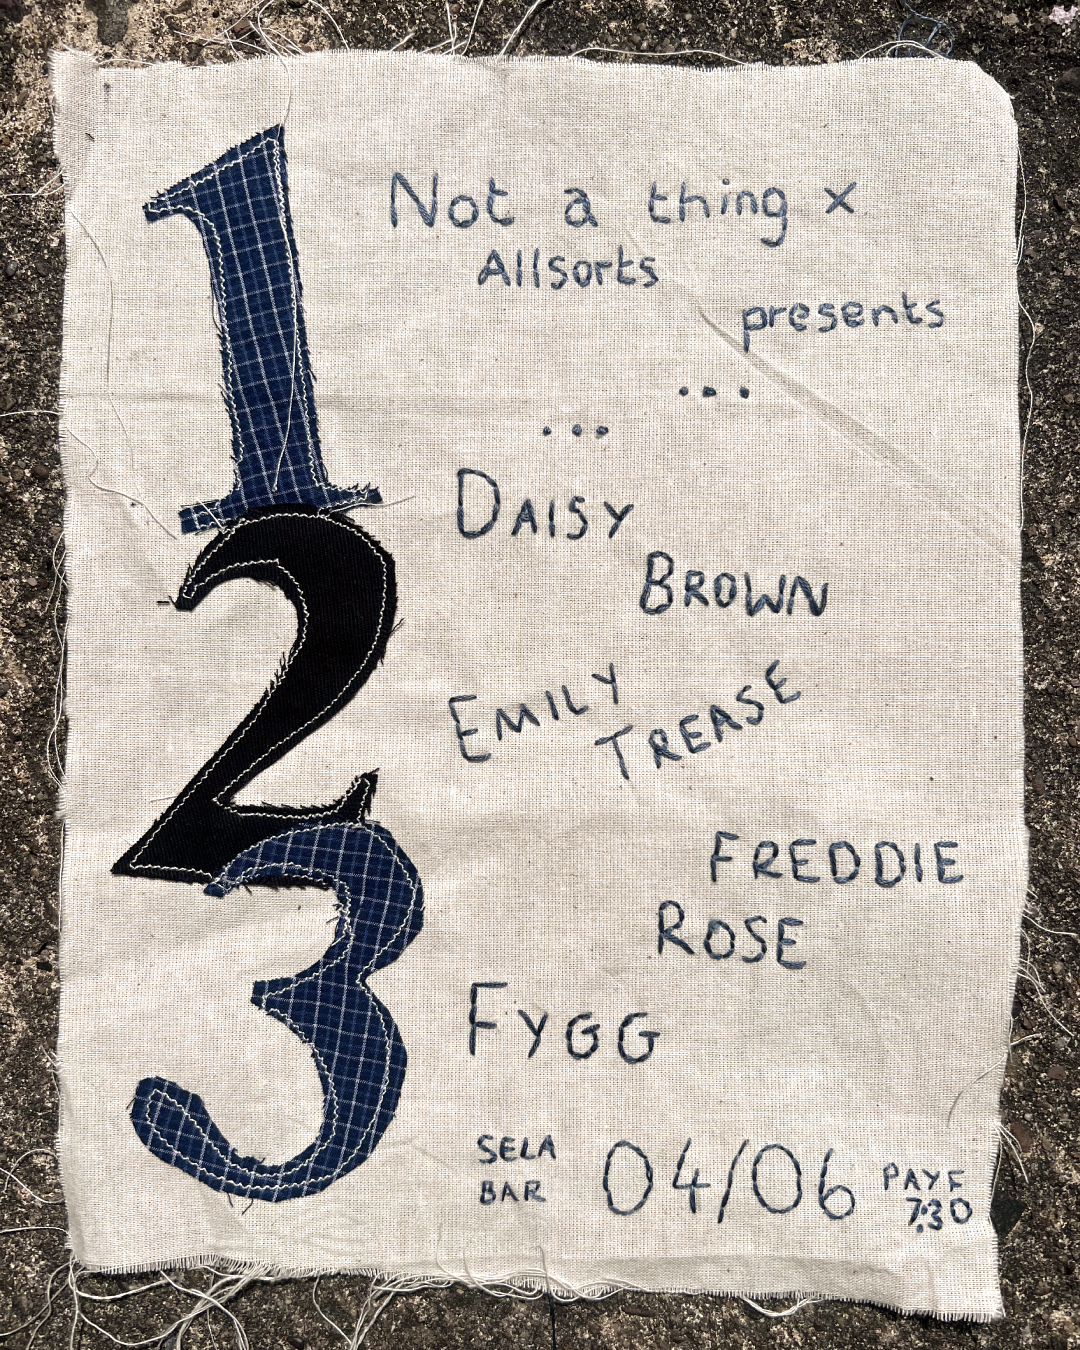 1
2
3
Not a thing x
Allsorts
presents
...
...
DAISY
BROWN
EMILY
TREASE
FREDDIE
ROSE
FYGG
SELA
BAR
04/06
PAYF
7:30